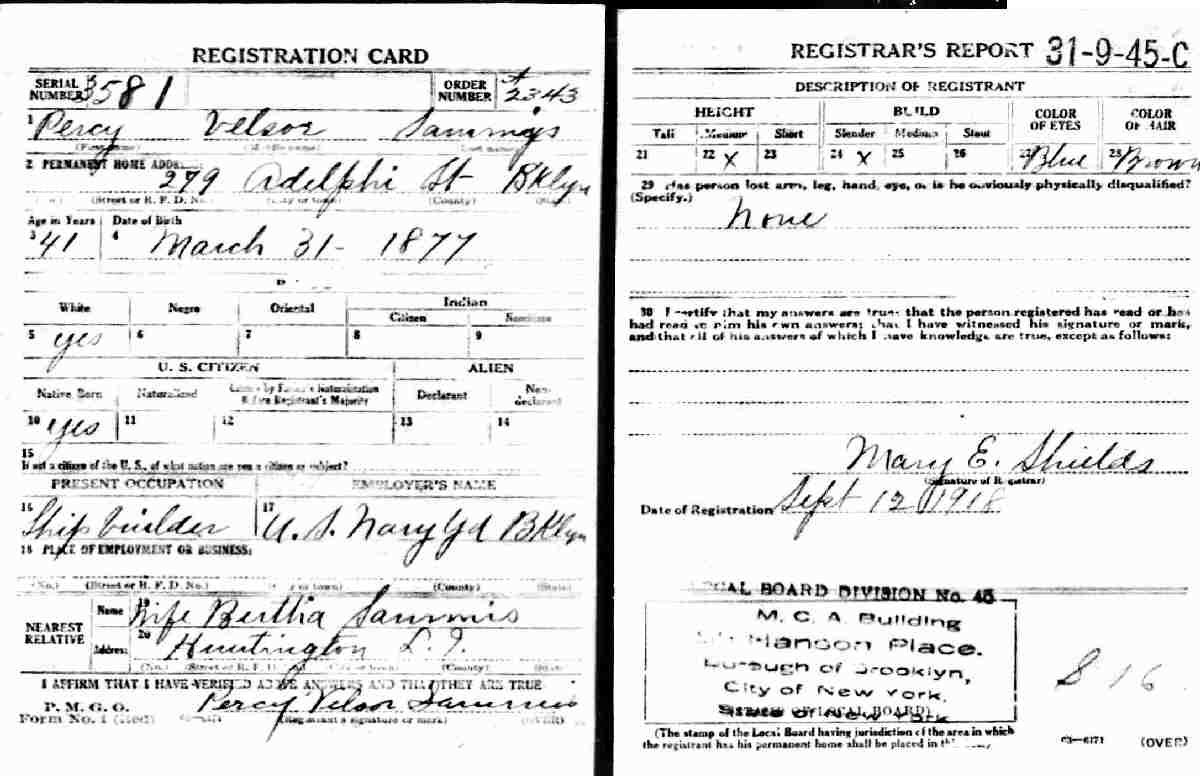 REGISTRATION CARD
SERIAL NUMBER 3581
ORDER NUMBER 2343
1 Percy Velsor Sammis
(First name) (Middle name) (Last name)
2 PERMANENT HOME ADDRESS:
279 Adelphi St Bklyn
(No.) (Street or R. F. D. No.) (City or town) (County) (State)
Age in Years Date of Birth
3 41 4 March 31- 1877
White Negro Oriental Indian
Citizen Noncitizen
5 yes 6 7 8 9
U. S. CITIZEN ALIEN
Native Born Naturalized Citizen by Father's Naturalization Before Registrant's Majority Declarant Non-declarant
10 yes 11 12 13 14
15
If not a citizen of the U. S., of what nation are you a citizen or subject?
PRESENT OCCUPATION EMPLOYER'S NAME
16 Ship builder 17 U. S. Navy Yd Bklyn
18 PLACE OF EMPLOYMENT OR BUSINESS:
(No.) (Street or R. F. D. No.) (City or town) (County) (State)
NEAREST RELATIVE
Name 19 Wife Bertha Sammis
Address 20 Huntington L. I.
(No.) (Street or R. F. D. No.) (City or town) (County) (State)
I AFFIRM THAT I HAVE VERIFIED ABOVE ANSWERS AND THAT THEY ARE TRUE
P. M. G. O.
Form No. 1 (Red) Percy Velsor Sammis
(Registrant's signature or mark) (OVER)
REGISTRAR'S REPORT 31-9-45-C
DESCRIPTION OF REGISTRANT
HEIGHT BUILD COLOR OF EYES COLOR OF HAIR
Tall Medium Short Slender Medium Stout
21 22 X 23 24 X 25 26 27 Blue 28 Brown
29 Has person lost arm, leg, hand, eye, or is he obviously physically disqualified?
(Specify.) None
30 I certify that my answers are true; that the person registered has read or has
had read to him his own answers; that I have witnessed his signature or mark,
and that all of his answers of which I have knowledge are true, except as follows:
Mary E. Shields
(Signature of Registrar)
Date of Registration Sept 12 1918
LOCAL BOARD DIVISION No. 45
M. C. A Building
Hanson Place.
Borough of Brooklyn,
City of New York,
State of New York
(STAMP OF LOCAL BOARD)
(The stamp of the Local Board having jurisdiction of the area in which
the registrant has his permanent home shall be placed in this
816
03—6171 (OVER)